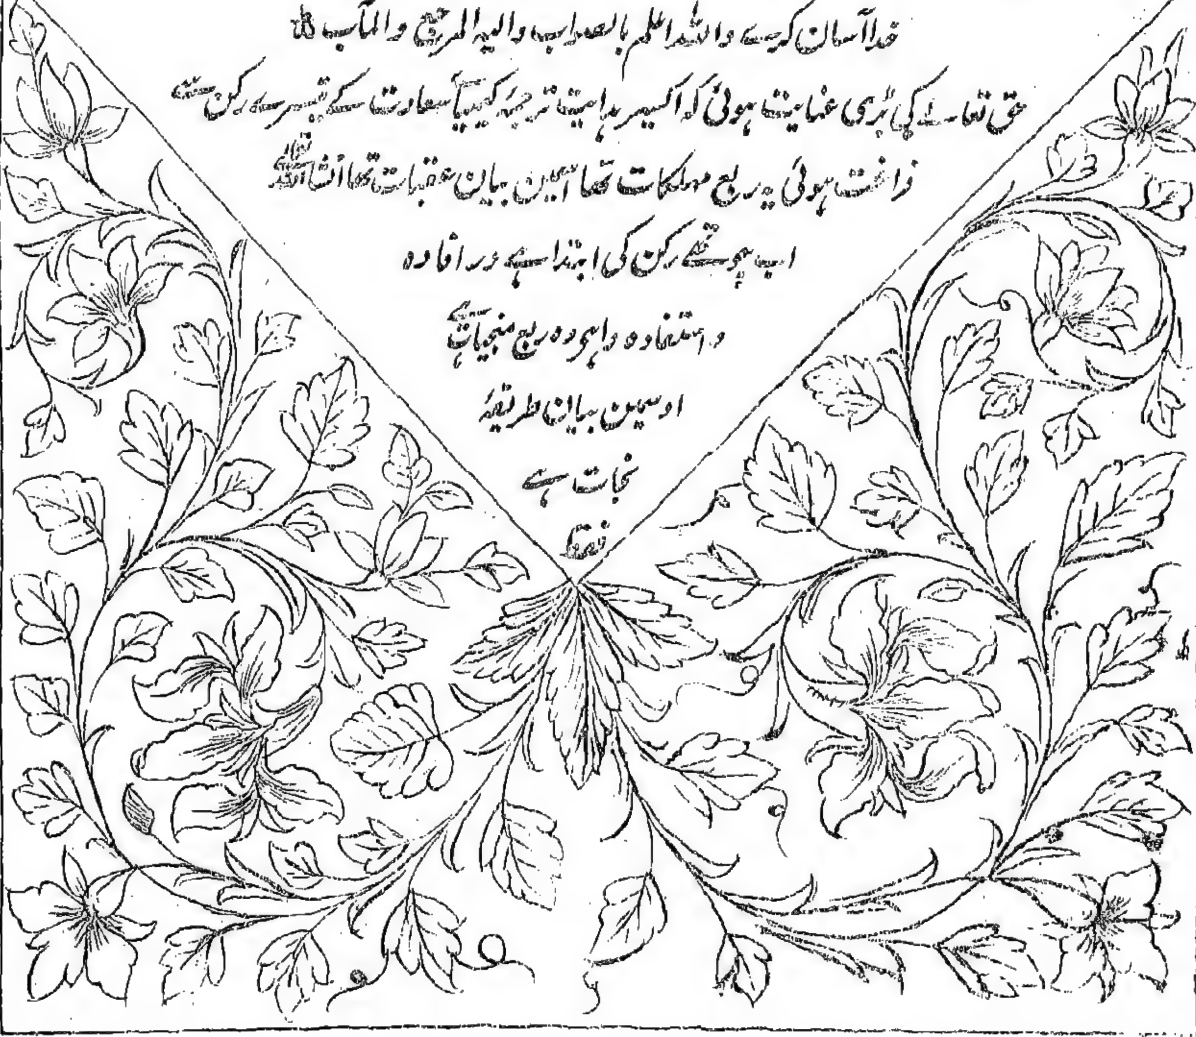 خدا آسان کرے واللہ اعلم بالصواب والیہ المرجع والمآب
حق تعالےٰ کی بڑی عنایت ہوئی کہ اکسیر ہدایت ترجمۂ کیمیاے سعادت کے تیسرے رکن سے
فراغت ہوئی یہ ربع مہلکات تھا اسمین بیان عقبات تھا انشاء اللہ تعالیٰ
اب چوتھے رکن کی ابتدا ہے در افادہ
و استفادہ وا ہے وہ ربع منجیات ہے
اوسمین بیان طریقۂ
نجات ہے
فقط